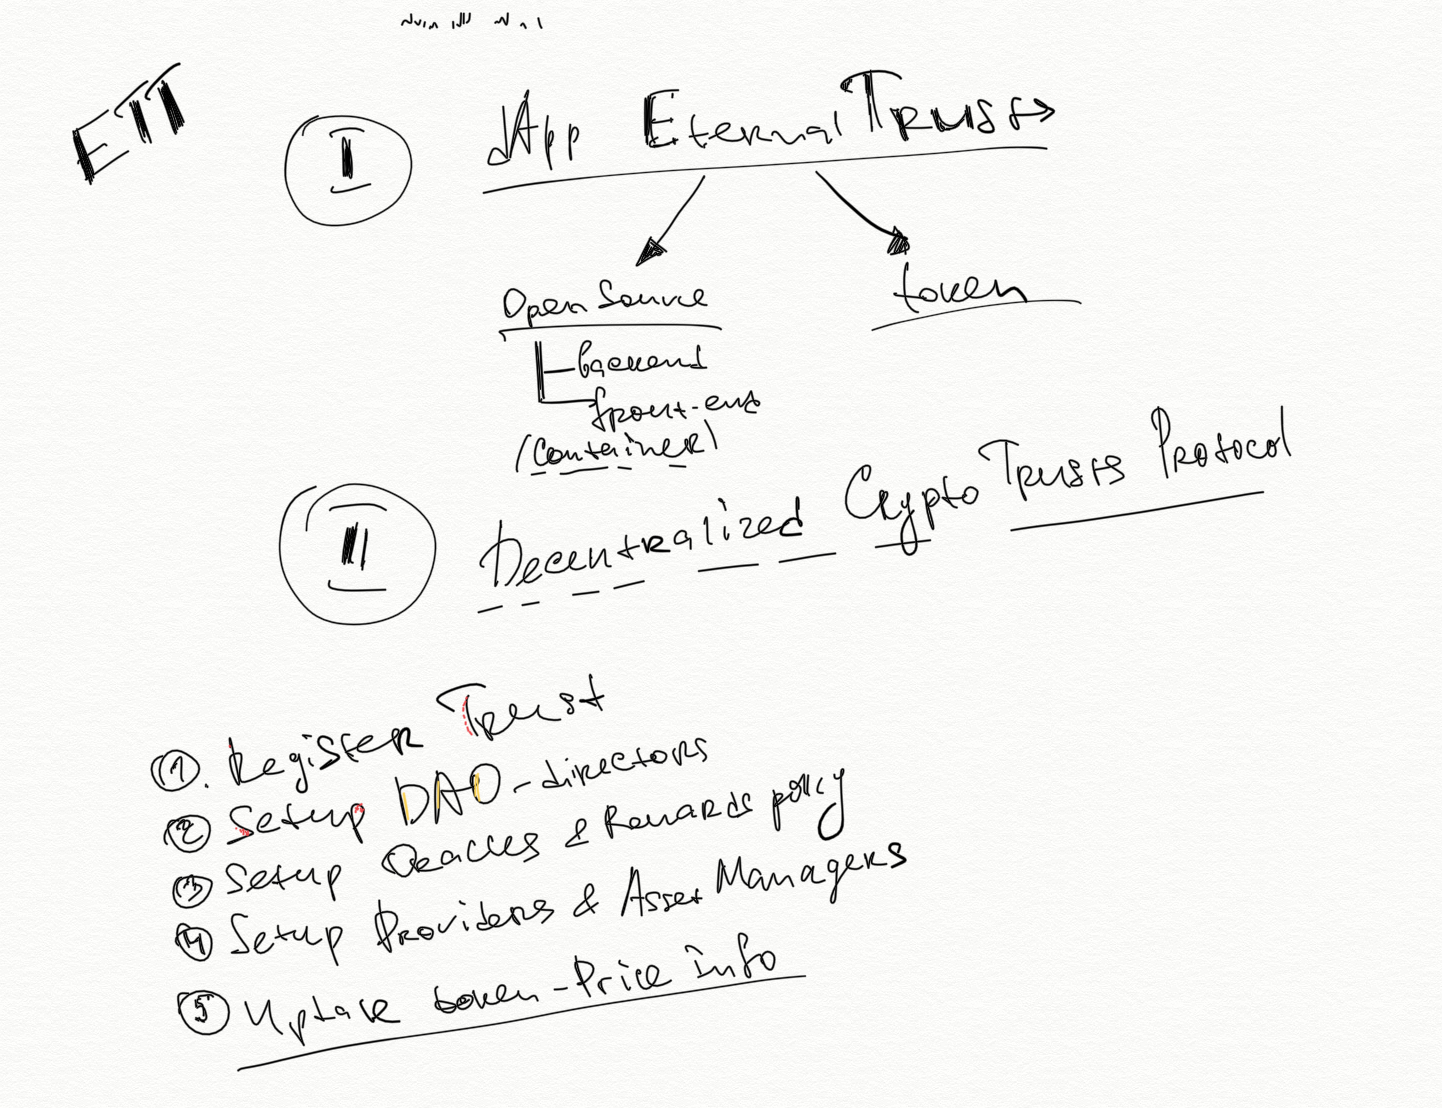 ETT
I dApp Eternal Trusts
Open Source
token
backend
front-end
(container)
II Decentralized Crypto Trusts Protocol
1. Register Trust
2 Setup DAO-directors
3 Setup Oracles & Rewards policy
4 Setup Providers & Asset Managers
5 Uptake token-Price info